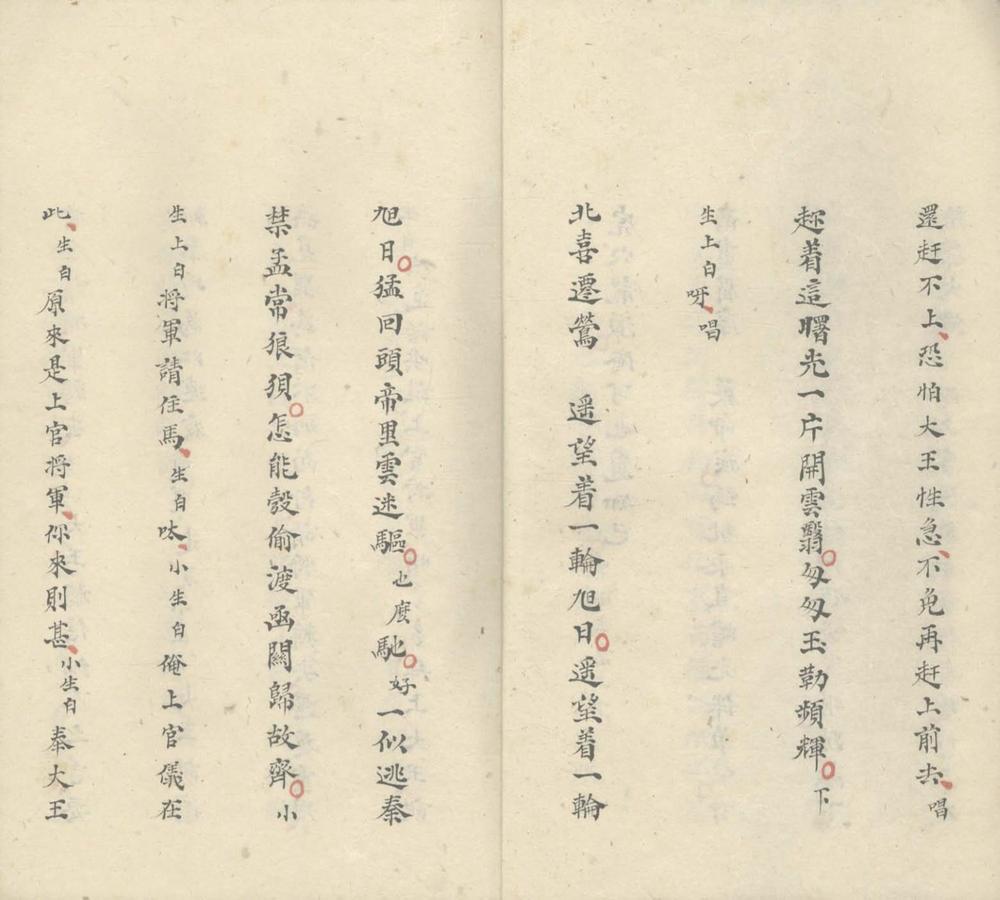 還赶不上、恐怕大王性急、不免再赶上前去、唱
趂着這曙光一片開雲翳。匆匆玉勒頻輝。下
生上白呀、唱
北喜遷鶯　遥望着一輪旭日。遥望着一輪
旭日。猛回頭帝里雲迷驅。也麽馳。好一似逃秦
禁孟常狼狽。怎能彀偷渡函關歸故齊。小
生上白將軍請住馬、生白呔、小生白俺上官儀在
此、生白原來是上官將軍、你來則甚、小生白奉大王